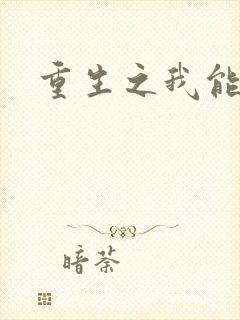 重生之我能
暗荼